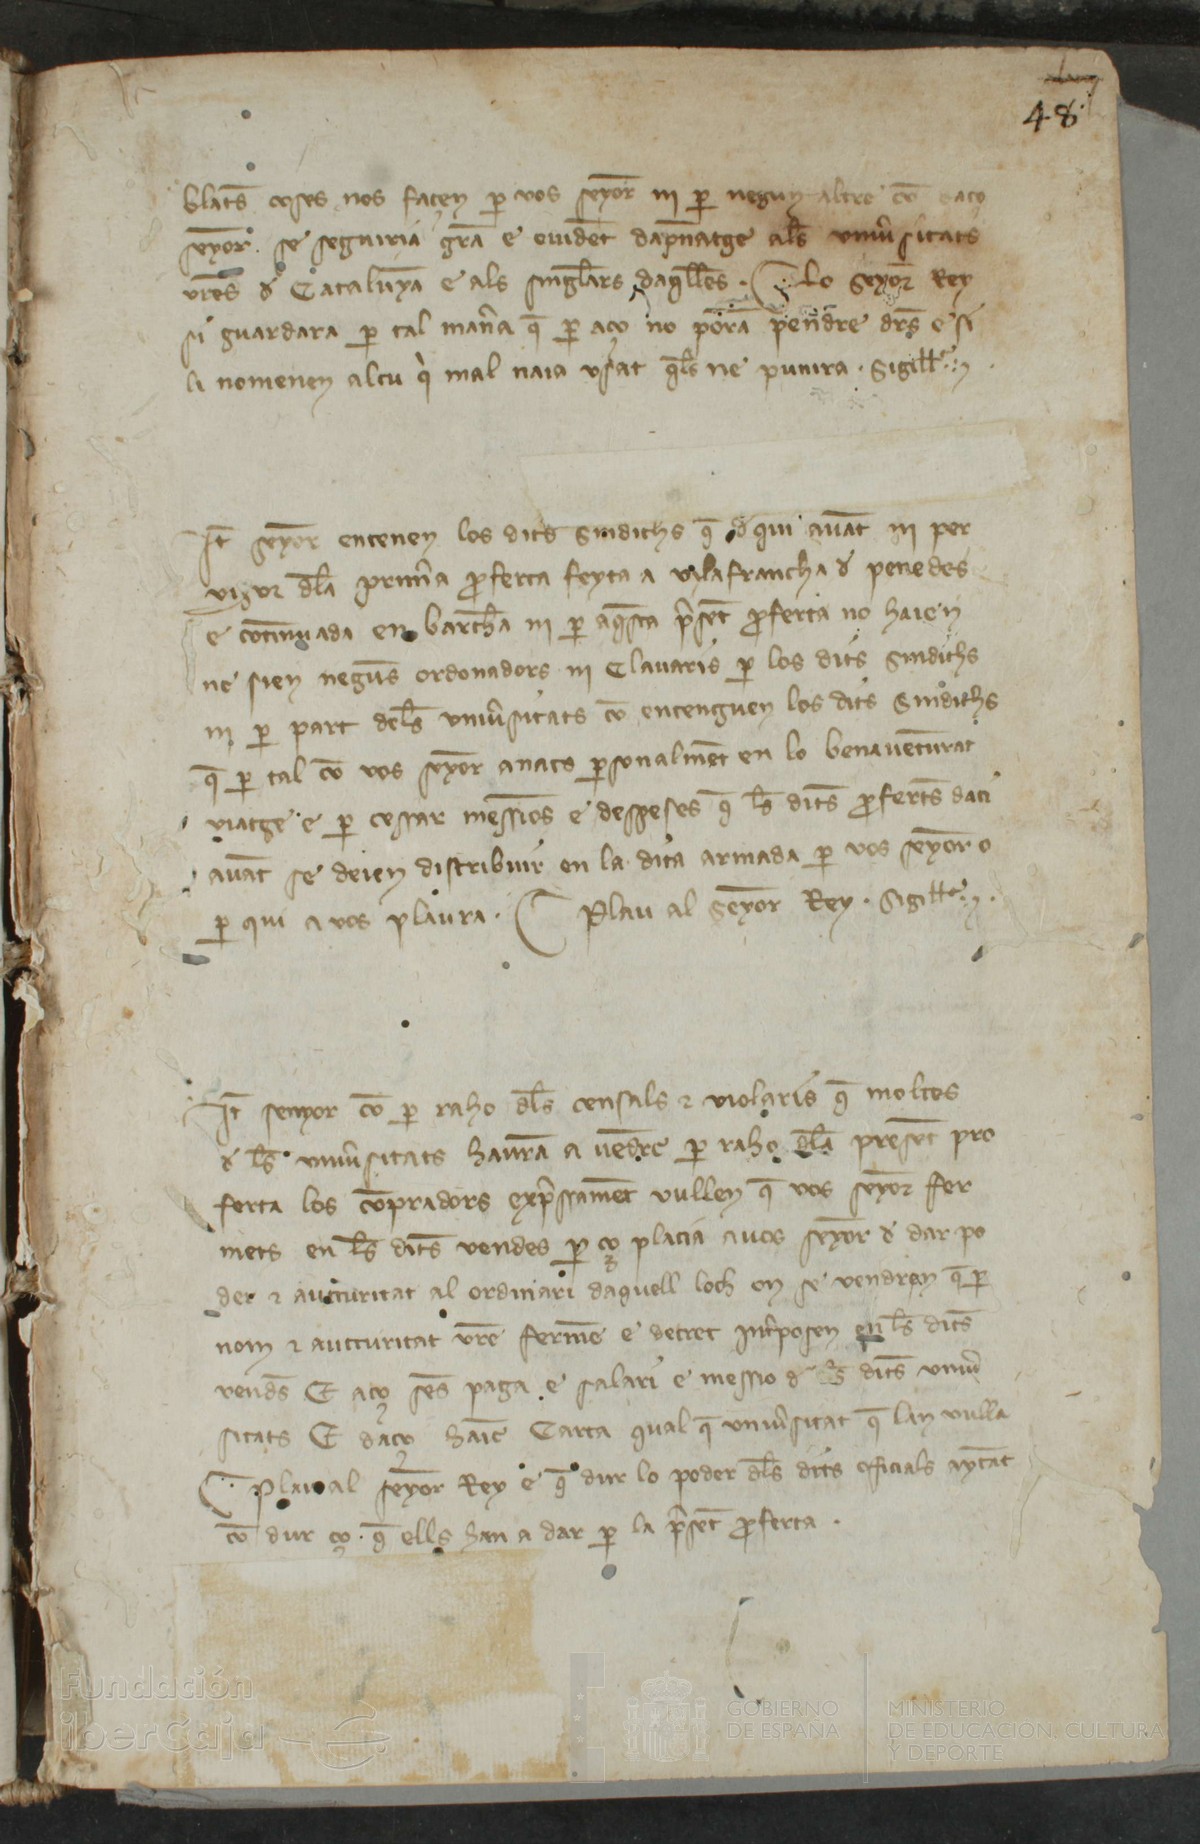 48
blats coses nos façen per vos senyor ni per negun altre co daço
senyor se seguiria gran e euident dapnatge als uniuersitats
vres de Cataluya e als singlars daqlles. Lo senyor Rey
si guardara per tal mana q per aço no poran pendre drs e si
li nomenen alcu qi mal naia usat qls ne punira. Sigillo.
It senyor entenen los dits sindichs q dqui auat ni per
vigor dla primera proferta feyta a vilafrancha d penedes
e cotinuada en barchna ni p aqsta pset proferta no haien
ne sien neguns ordonadors ni Clauaris p los dits sindichs
ni p part dels uniusitats co entenguen los dits Sindichs
q p tal co vos senyor anats psonalmet en lo benauenturat
viatge e p cessar messios e despeses q ls dits proferts daci
auat se deien distribuir en la dita armada p vos senyor o
p qui a vos plaura. Plau al Senyor Rey. Sigillo.
It senyor co p raho dls censals e violaris q moltes
d ls uniusitats hauran a uedre p raho dla preset pro
ferta los copradors expssamet vullen q vos senyor fer
mets en ls dits vendes p ço placia a vos senyor d dar po
der e auctoritat al ordinari daquell loch on se vendran q p
nom e auctoritat vre ferme e decret intposen en ls dits
vends E aço ses paga e salari e messio d ls dits uniu
sitats E daço haie Carta qual q uniusitat q lan vulla
Plau al senyor Rey e q dur lo poder dls dits officials aytat
co dur ço q ells han a dar p la pset proferta.
Fundación
iberCaja
GOBIERNO
DE ESPAÑA
MINISTERIO
DE EDUCACIÓN, CULTURA
Y DEPORTE